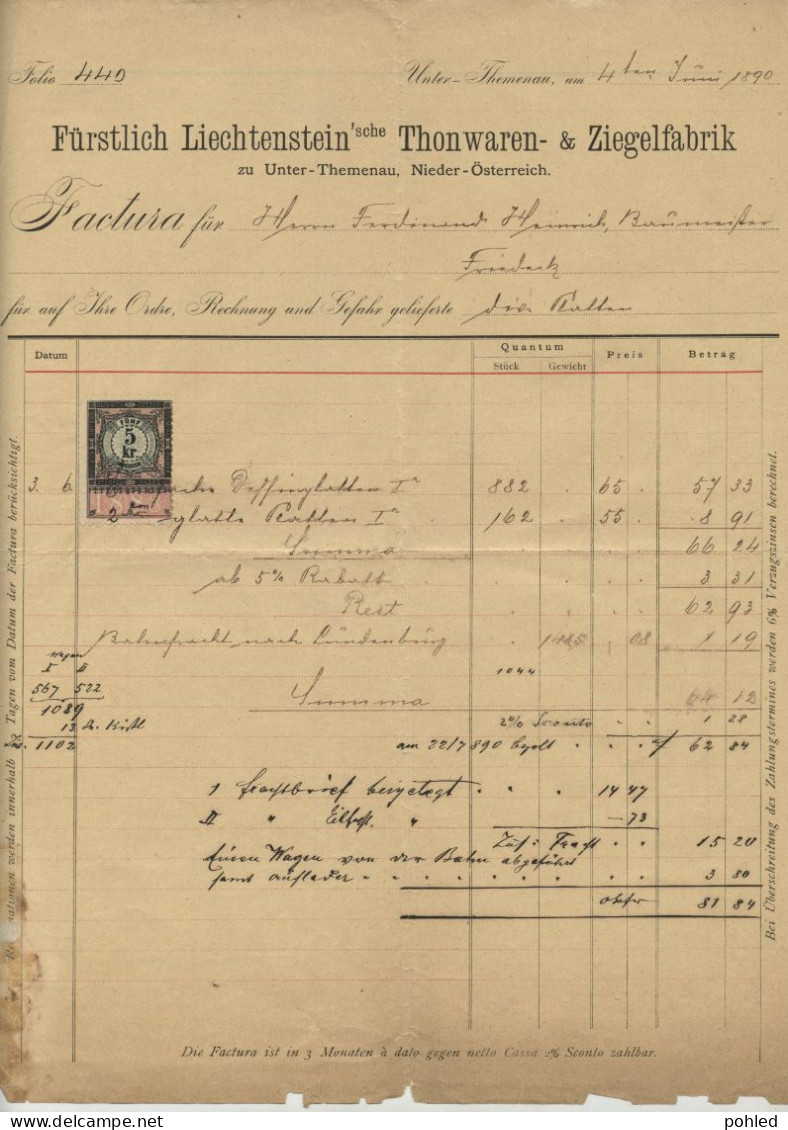 Folio 440 Unter-Themenau, am 4ten Juni 1890
Fürstlich Liechtenstein'sche Thonwaren- & Ziegelfabrik
zu Unter-Themenau, Nieder-Österreich.
Factura für Herrn Ferdinand Heinrich, Baumeister
Friedeck
für auf Ihre Ordre, Rechnung und Gefahr gelieferte div. Platten
Datum Quantum Preis Betrag
Stück Gewicht
FÜNF
5
kr.
3. 6. Dessinplatten Iª 882 65 57 33
glatte Platten Iª 162 55 8 91
Summa 66 24
ab 5% Rabatt 3 31
Rest 62 93
Bahnfracht nach Lundenburg 08 1 19
Wagen
I II 1044
567 522 Summa 64 12
1089
13 2% Sconto 1 28
1102 am 22/7 890 bezalt 62 84
I Frachtbrief beigelegt 14 47
II " " — 73
Fracht 15 20
Einen Wagen von der Bahn abgeführt
samt aufladen 3 80
81 84
Reclamationen werden innerhalb Tagen vom Datum der Factura berücksichtigt.
Bei Überschreitung des Zahlungstermines werden 6% Verzugszinsen berechnet.
Die Factura ist in 3 Monaten à dato gegen netto Cassa 2% Sconto zahlbar.
pohled